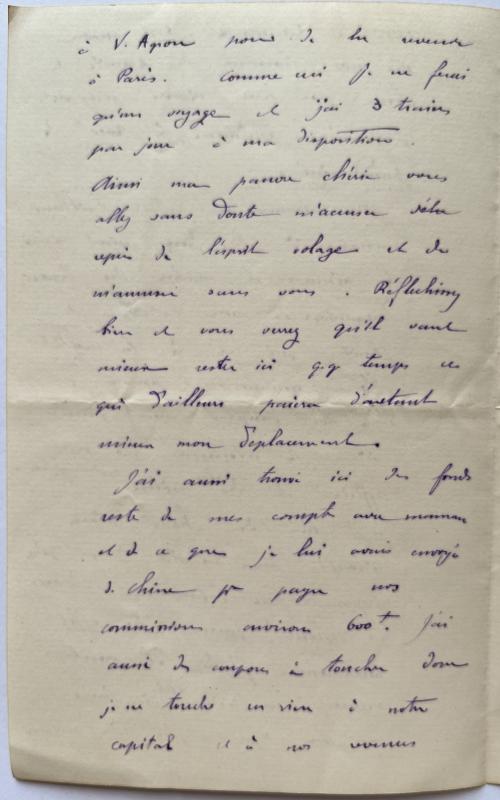 à V. pour de la revoir
à Paris. Comme ici je ne ferai
qu'un voyage et j'ai 3 trains
par jour à ma disposition.
Ainsi ma pauvre chérie vous
allez sans doute m'accuser d'être
repris de l'esprit volage et de
m'amuser sans vous. Réfléchissez
bien et vous verrez qu'il vaut
mieux rester ici qq temps ce
qui d'ailleurs paiera d'autant
mieux mon déplacement.
J'ai aussi trouvé ici des fonds
reste de mes compte avec maman
et de ce que je lui avais envoyé
de Chine pr payer nos
commissions environ 600f. J'ai
aussi des coupons à toucher donc
je ne touche en rien à notre
capital et à nos revenus